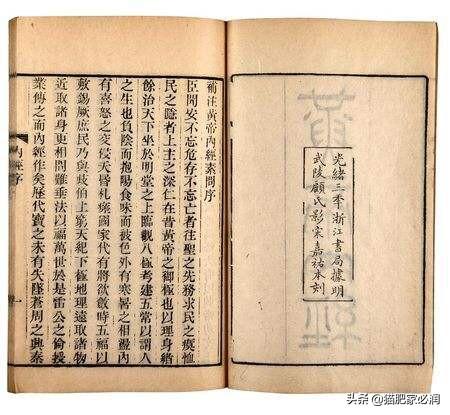 光緒三秊浙江書局據明
武陵顧氏影宋嘉祐本刻
補注黃帝內經素問序
臣聞安不忘危存不忘亡者往聖之先務求民之瘼恤
民之隱者上主之深仁在昔黃帝之御極也以理身緒
餘治天下坐於明堂之上臨觀八極考建五常以謂人
之生也負陰而抱陽食味而被色外有寒暑之相盪內
有喜怒之交侵夭昏札瘥國家代有將欲斂時五福以
敷錫厥庶民乃與岐伯上窮天紀下極地理遠取諸物
近取諸身更相問難垂法以福萬世於是雷公之倫授
業傳之而內經作矣歷代寶之未有失墜蒼周之興秦
內經序
一
头条 @猫肥家必润